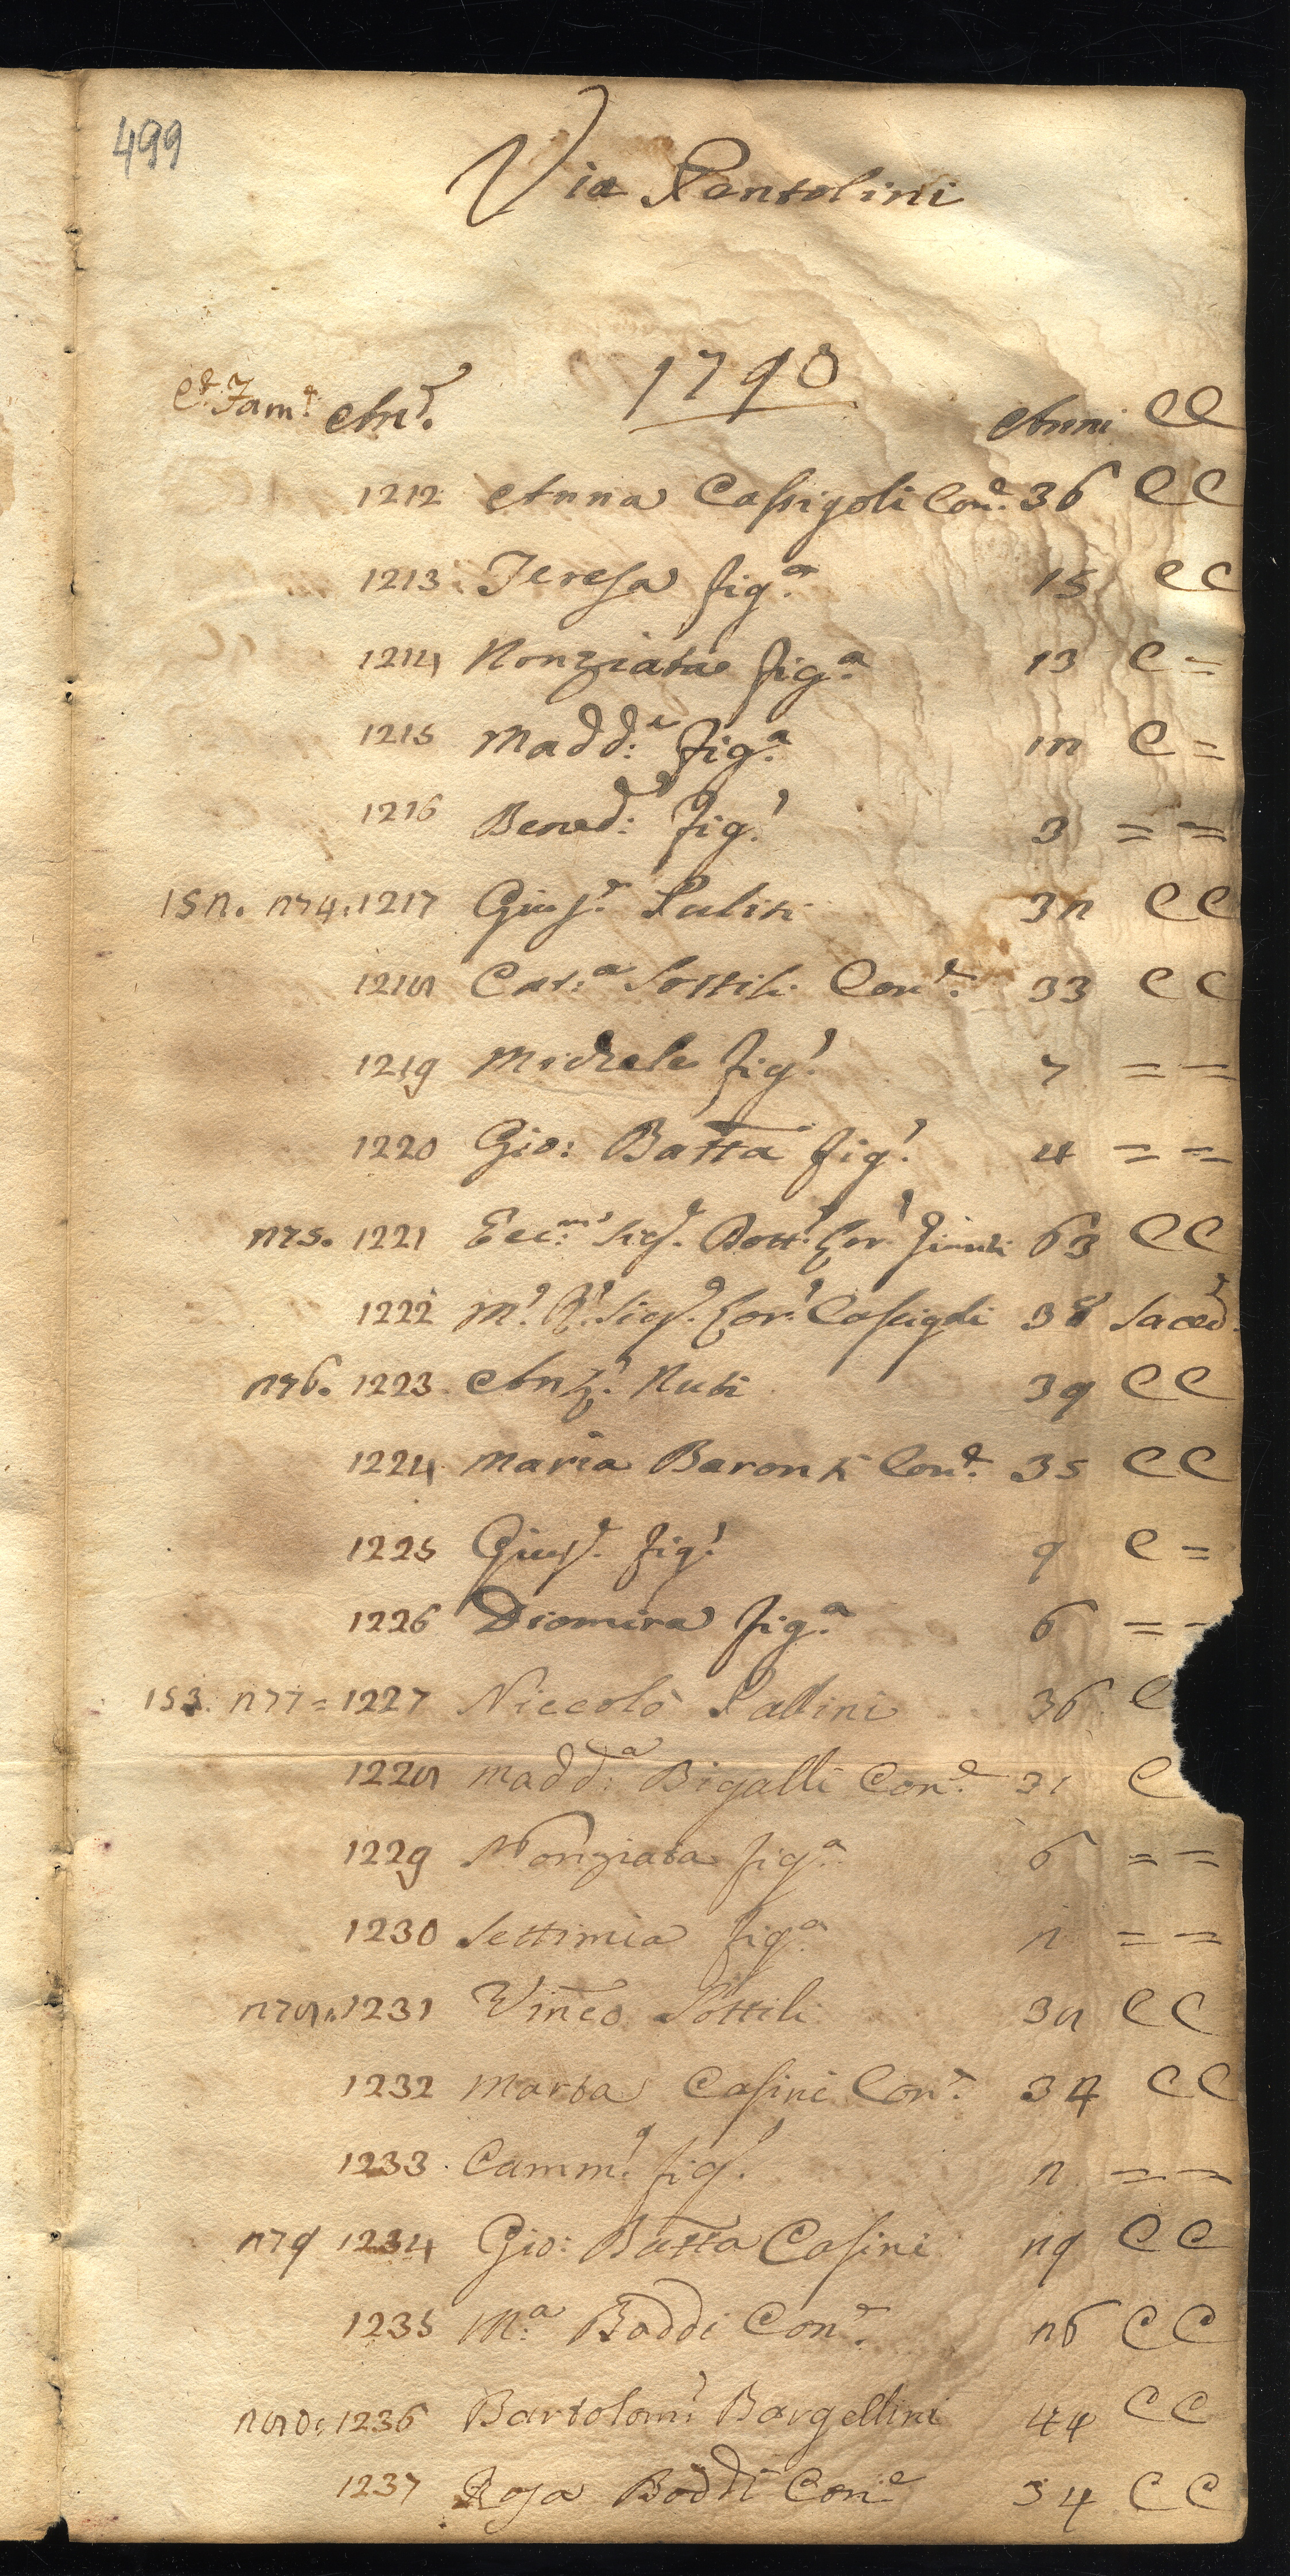 499
Via Pantolini
1790
C.e Fam.e An.e Anni CC
1212 Anna Cassigoli Con.e 36 CC
1213 Teresa fig.a 15 CC
1214 Nonziata fig.a 13 C =
1215 Madd:a fig.a 12 C =
1216 Bened: fig.o 3 = =
152. 274. 1217 Gius.e Puliti 32 CC
1218 Cat:a Sottili Con.e 33 CC
1219 Michele fig.o 7 = =
1220 Gio: Batta fig.o 4 = =
275. 1221 Ecc:mo Sig.e Dott.e Lor.o 63 CC
1222 M.o R.o Sig.e Lor.o Cassigoli 38 Sacerd.e
276. 1223 Ant.o Nuti 39 CC
1224 Maria Baronti Con.e 35 CC
1225 Gius.e fig.o 9 C =
1226 Diomira fig.a 6 = =
153. 277 = 1227 Niccolò Pallini 36 C
1228 Madd:a Bigalli Con.e 31 C
1229 Nonziata fig.a 6 = =
1230 Settimia fig.a 2 = =
278. 1231 Vinco Sottili 38 CC
1232 Marta Casini Con.e 32 CC
1233 Camm.o fig.o 2 = =
279 1234 Gio: Batta Casini 29 CC
1235 M:a Boddi Con.e 26 CC
280: 1236 Bartolom.o Bargellini 44 CC
1237 Rosa Boddi Con.e 34 CC